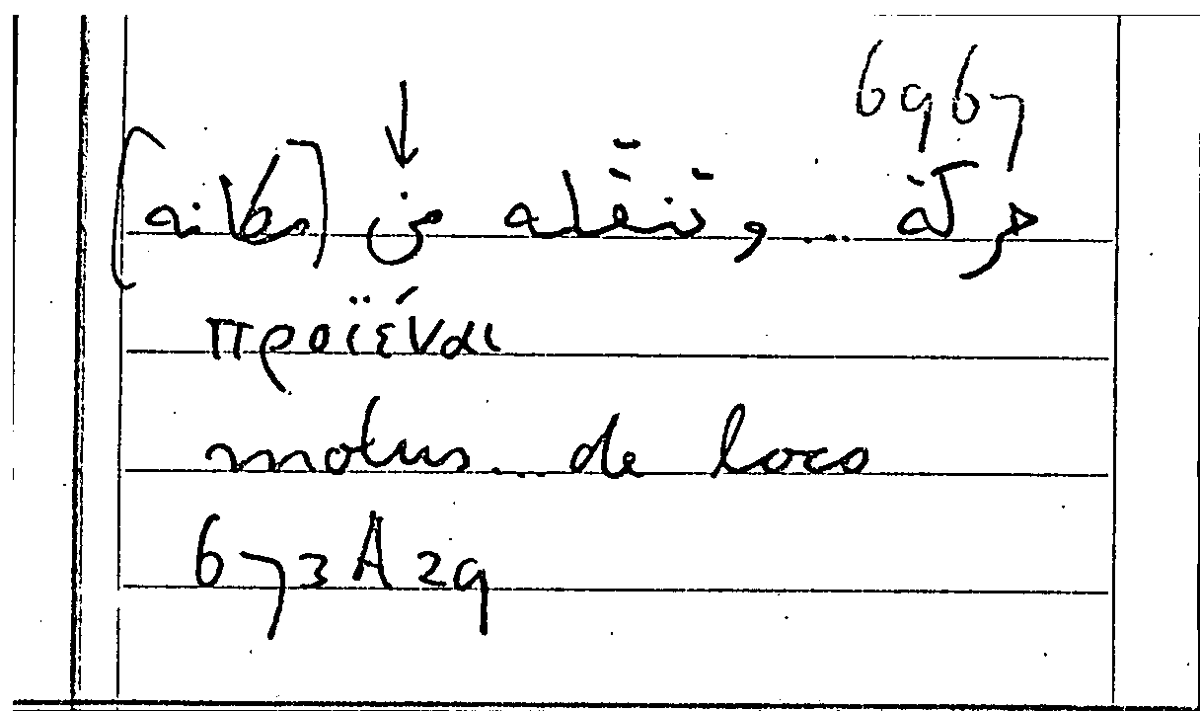 696,7
حركة ... وتنقله من [مكانه]
προϊέναι
motus... de loco
673A29